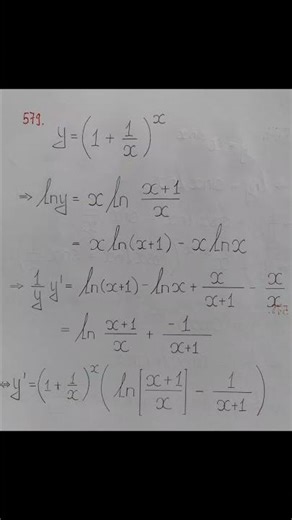 579.
y = (1 + 1/x)^x
⇒ ln y = x ln (x+1)/x
= x ln(x+1) - x ln x
⇒ 1/y y' = ln(x+1) - ln x + x/(x+1) - x/x
= ln (x+1)/x + -1/(x+1)
⇔ y' = (1 + 1/x)^x (ln[(x+1)/x] - 1/(x+1))